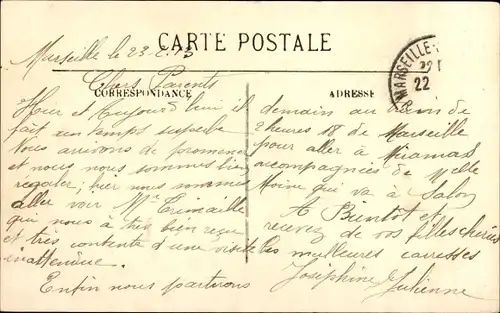 CARTE POSTALE
Marseille le 23.2.13
MARSEILLE
22
CORRESPONDANCE
ADRESSE
Chers Parents
Hier et Aujourd'hui il
fait un temps superbe
Nous arrivons de promener
et nous nous sommes bien
régaler; hier nous sommes
aller voir Me Trimaille
qui nous à très bien reçu
et très contente d'une visite
inattendue.
Enfin nous partirons
demain au train de
2 heures 18 de Marseille
pour aller à Miramas
accompagnées de Melle
Moine qui va à Salon
A Bientot et
recevez de vos filles chéries
les meilleures caresses
Joséphine & Julienne